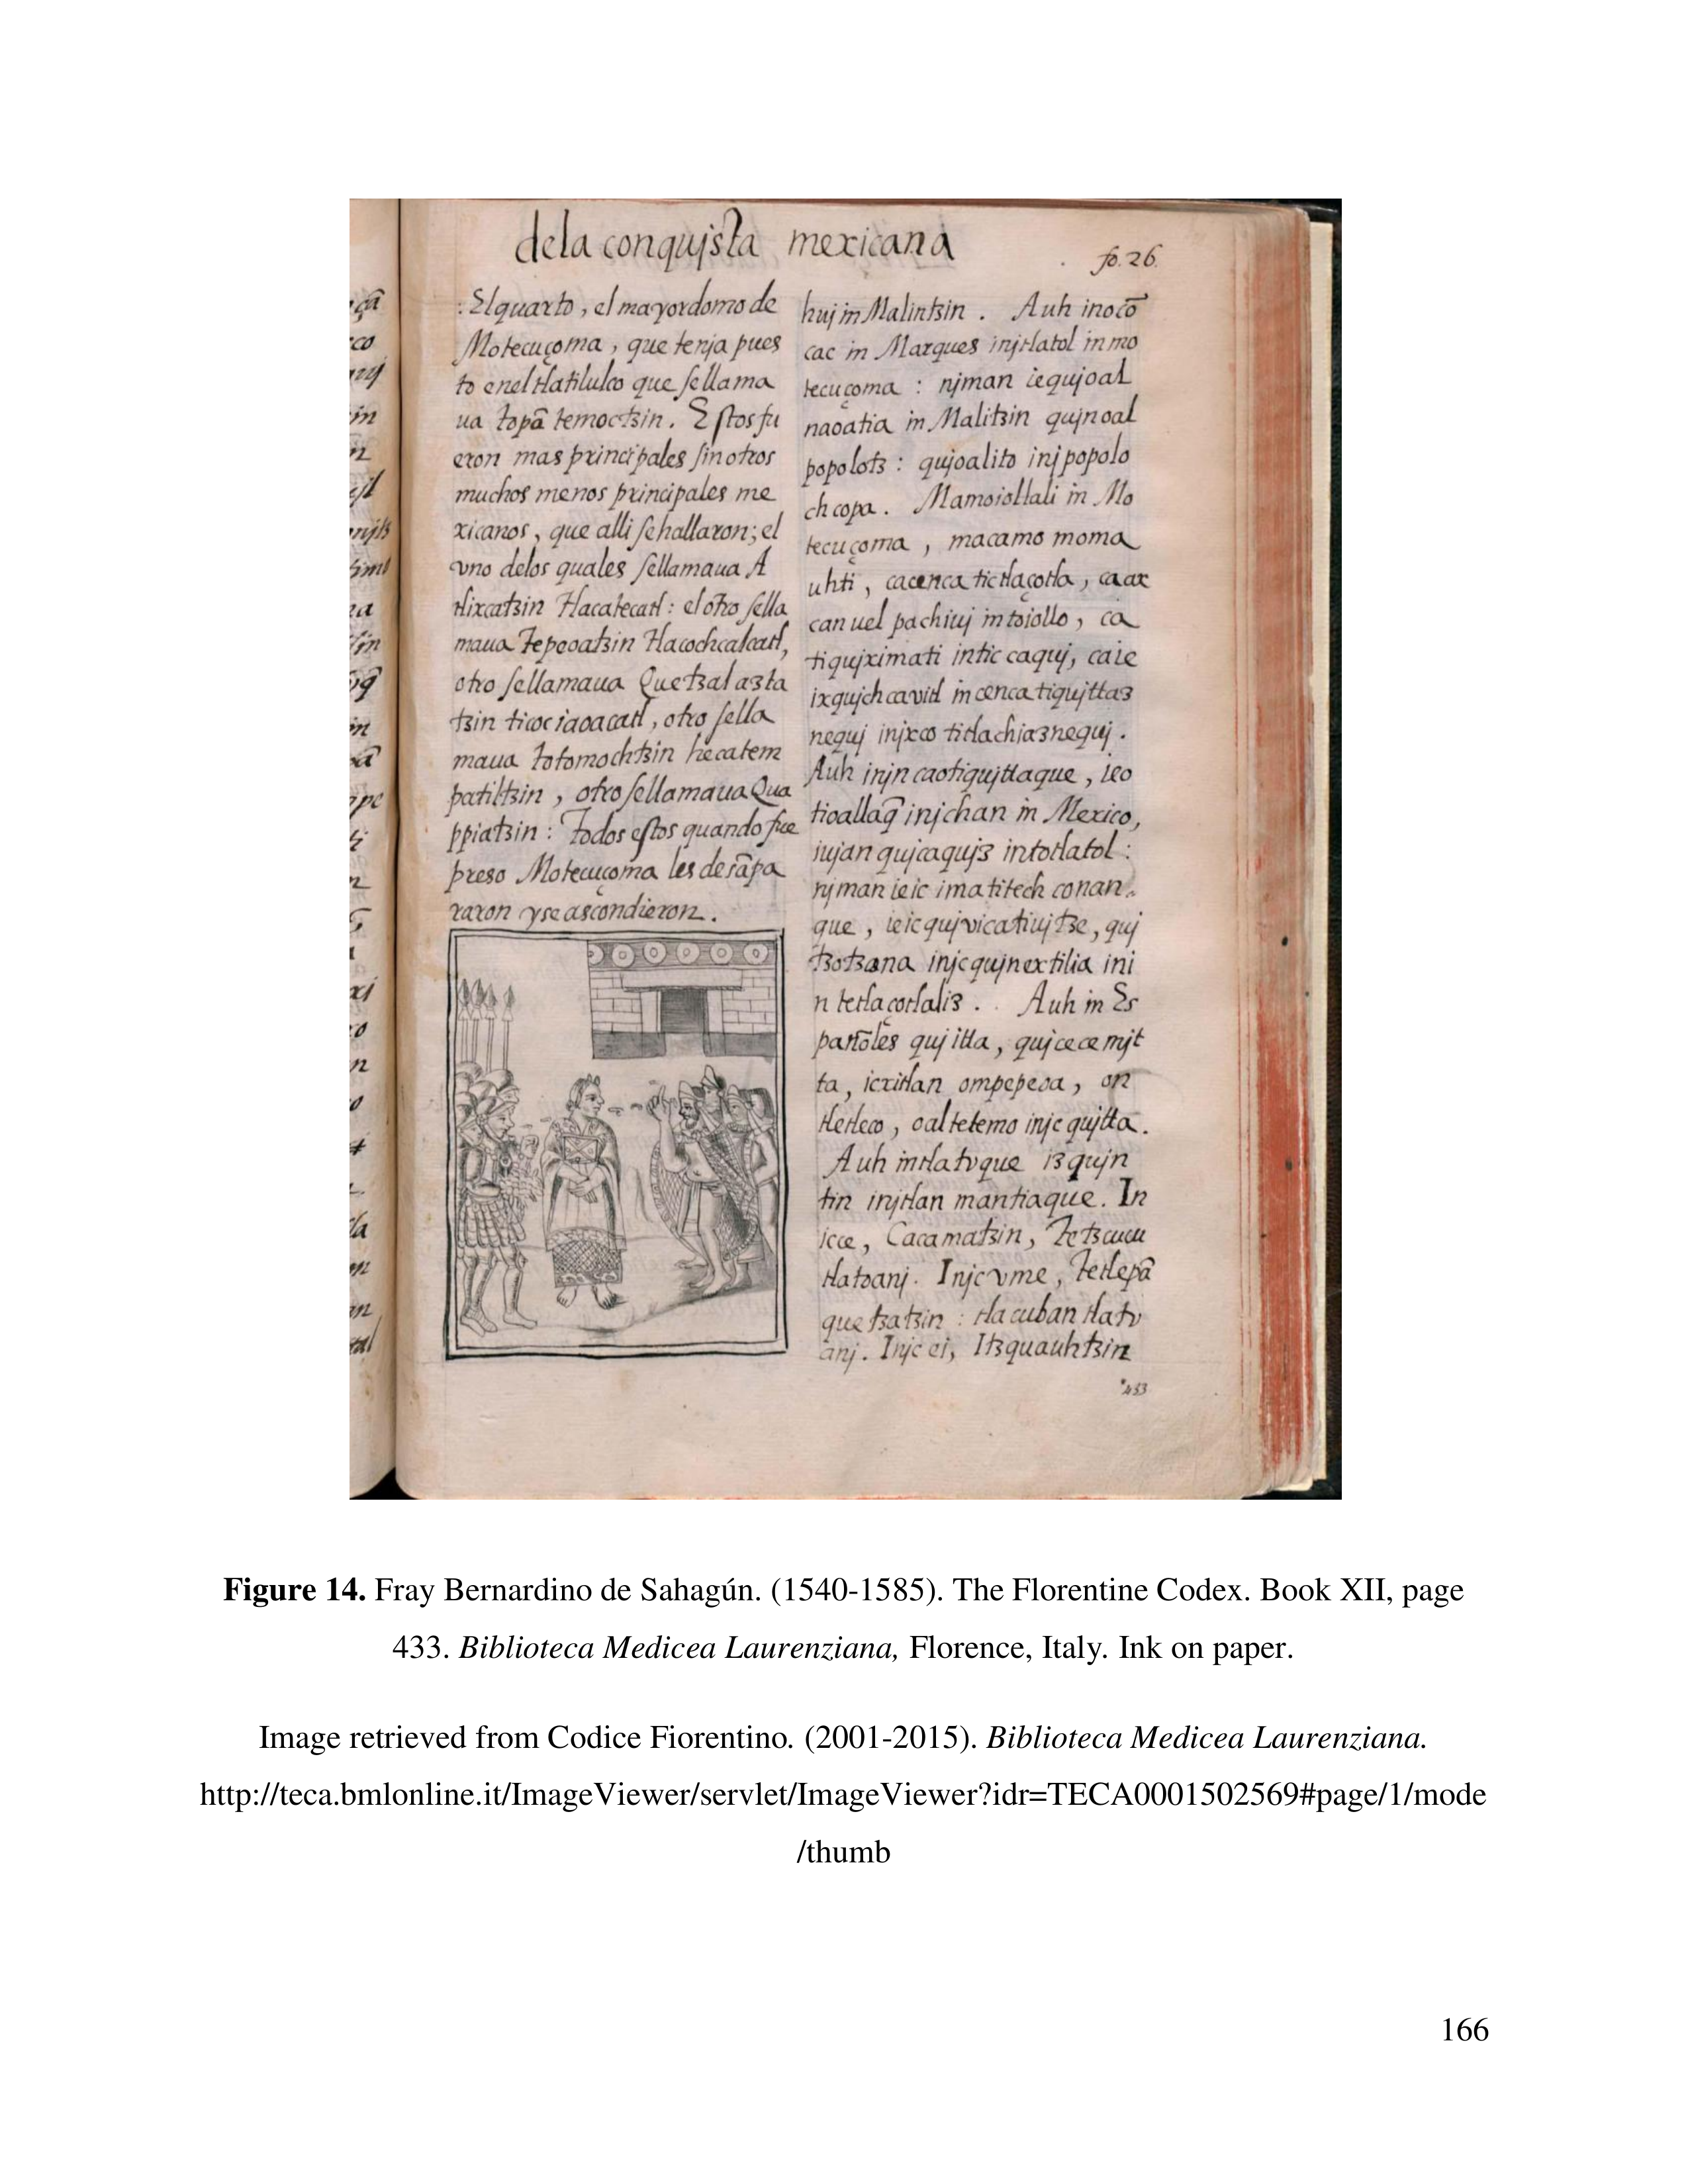 dela conqujsta mexicana
fo. 26.
: El quarto, el mayordomo de
Motecuçoma, que tenja pues
to enel tlatilulco que sellama
ua topã temoctzin. Estos fu
eron mas principales sin otros
muchos menos principales me
xicanos, que alli se hallaron; el
vno delos quales sellamaua A
tlixcatzin tlacatecatl: el otro sella
maua Tepeoatzin tlacochcalcatl,
otro sellamaua Quetzalazta
tzin ticociaoacatl, otro sella
maua totomochtzin hecatem
patiltzin, otro sellamaua Qua
ppiatzin: todos estos quando fue
preso Motecuçoma les desãpa
raron y se ascondieron.
huj in Malintzin. Auh in oco
cac in Marques injtlatol in mo
tecuçoma: njman iequjoal
naoatia in Malitzin qujnoal
popolotz: qujoalito inj popolo
ch copa. Mamoiollali in Mo
tecuçoma, macamo moma
uhti, cacenca tictlaçotla, ca ax
can uel pachiuj in toiollo, ca
tiqujximati in tic caquj, ca ie
ixqujch cavitl in cenca tiqujttaz
nequj injxco titlachiaznequj.
Auh injn ca otiqujttaque, ie o
tioallaq̃ injchan in Mexico,
iujan qujcaqujz in totlatol:
njman ie ic imatitech conan
que, ie ic qujvicatiujtze, quj
tzotzona injc qujnextilia ini
n tetlaçotlaliz. Auh in Es
pañoles qujitta, qujcecemjt
ta, icxitlan ompepeoa, on
tletleco, oaltetemo injc qujtta.
Auh in tlatoque izqujn
tin injtlan mantiaque. In
icce, Cacamatzin, Tetzcucu
tlatoanj. Injc vme, Tetlepã
quetzatzin: tlacuban tlato
anj. Injc ei, Itzquauhtzin
433
Figure 14. Fray Bernardino de Sahagún. (1540-1585). The Florentine Codex. Book XII, page
433. Biblioteca Medicea Laurenziana, Florence, Italy. Ink on paper.
Image retrieved from Codice Fiorentino. (2001-2015). Biblioteca Medicea Laurenziana.
http://teca.bmlonline.it/ImageViewer/servlet/ImageViewer?idr=TECA0001502569#page/1/mode
/thumb
166